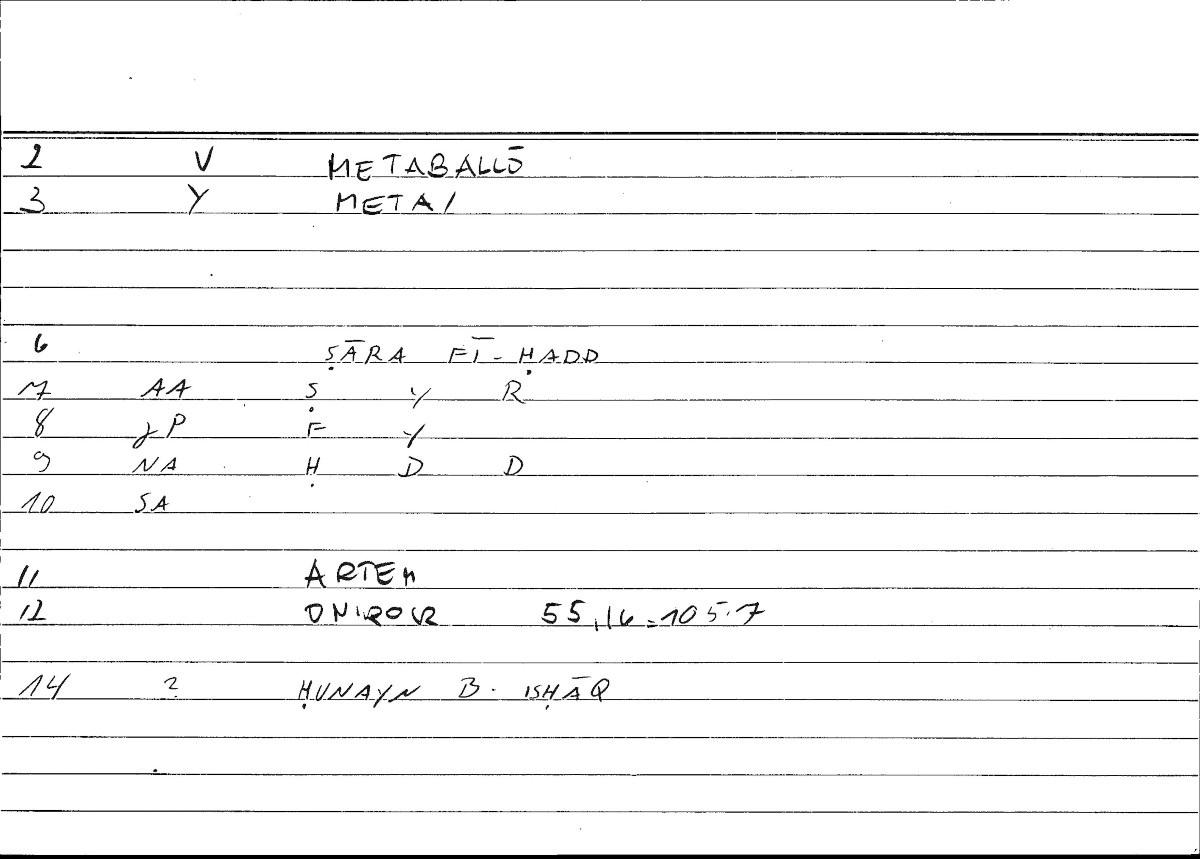 2 V METABALLŌ
3 Y META/
6 ṢĀRA FĪ-ḤADD
7 AA Ṣ Y R
8 JP F Y
9 NA Ḥ D D
10 SA
11 ARTEM
12 ONIROCR 55,16=105.7
14 2 ḤUNAYN B. ISḤĀQ